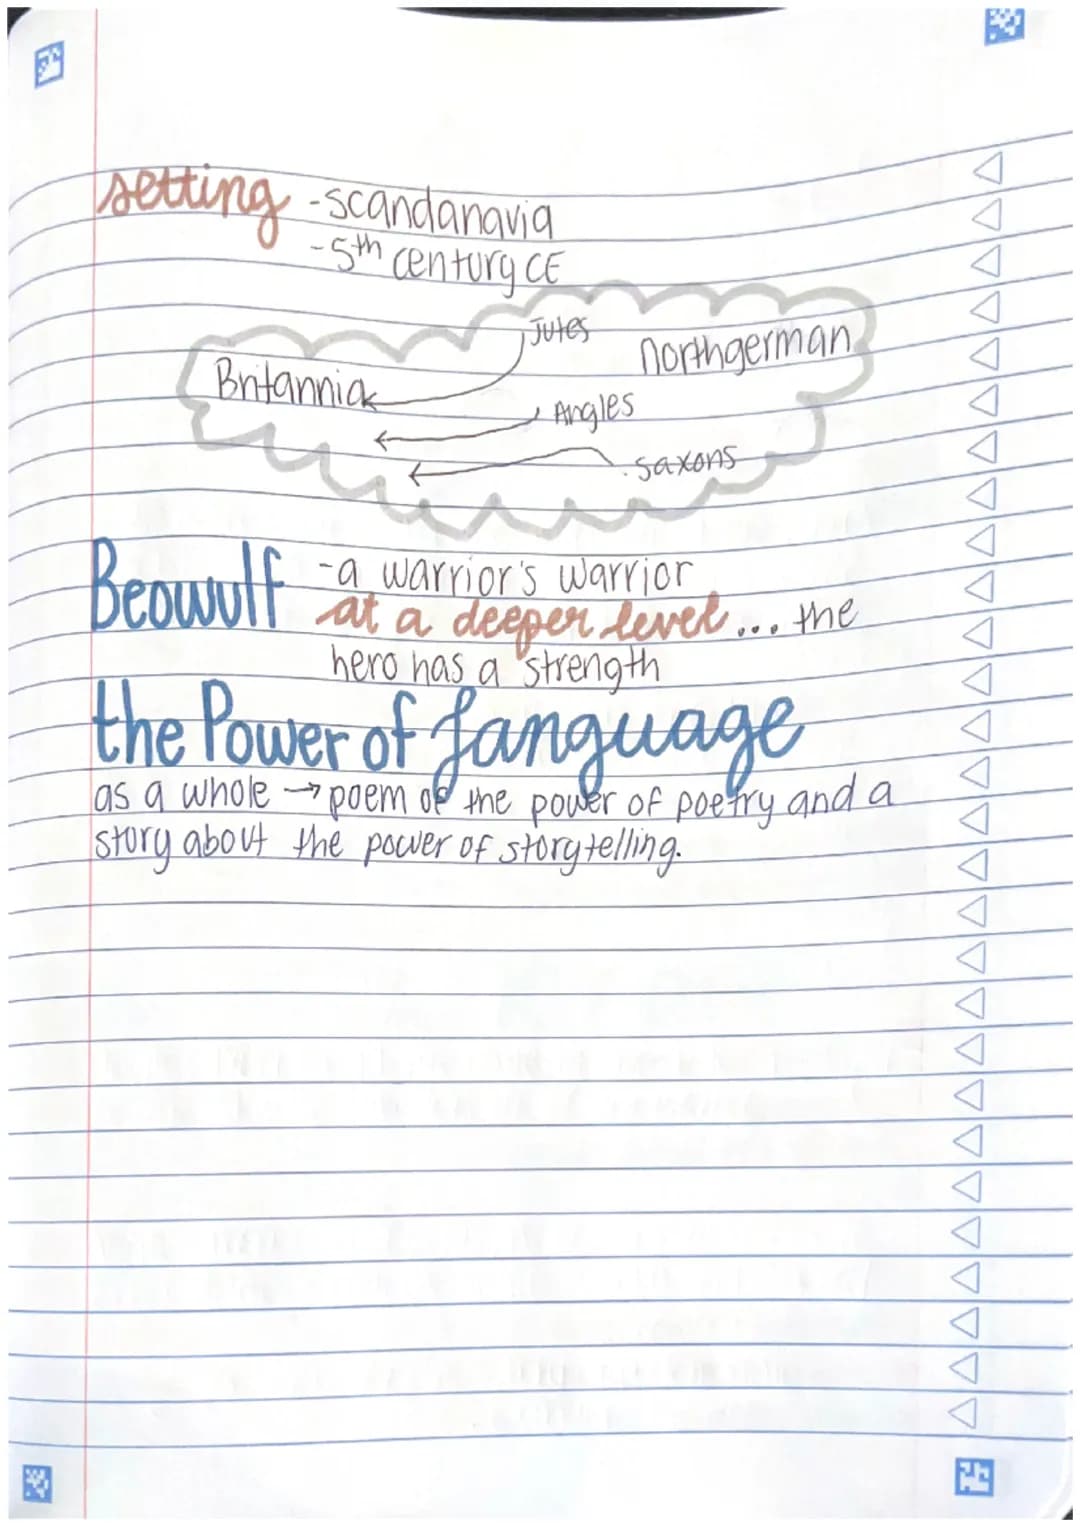 setting -scandanavia
-5th century CE
Jutes
northgerman
Britannia
Angles
saxons
Beowulf -a warrior's warrior
at a deeper level... the
hero has a strength
the Power of Language
as a whole → poem of the power of poetry and a
story about the power of storytelling.